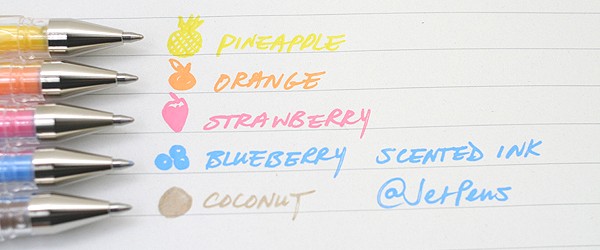 PINEAPPLE
ORANGE
STRAWBERRY
BLUEBERRY SCENTED INK
COCONUT @JetPens